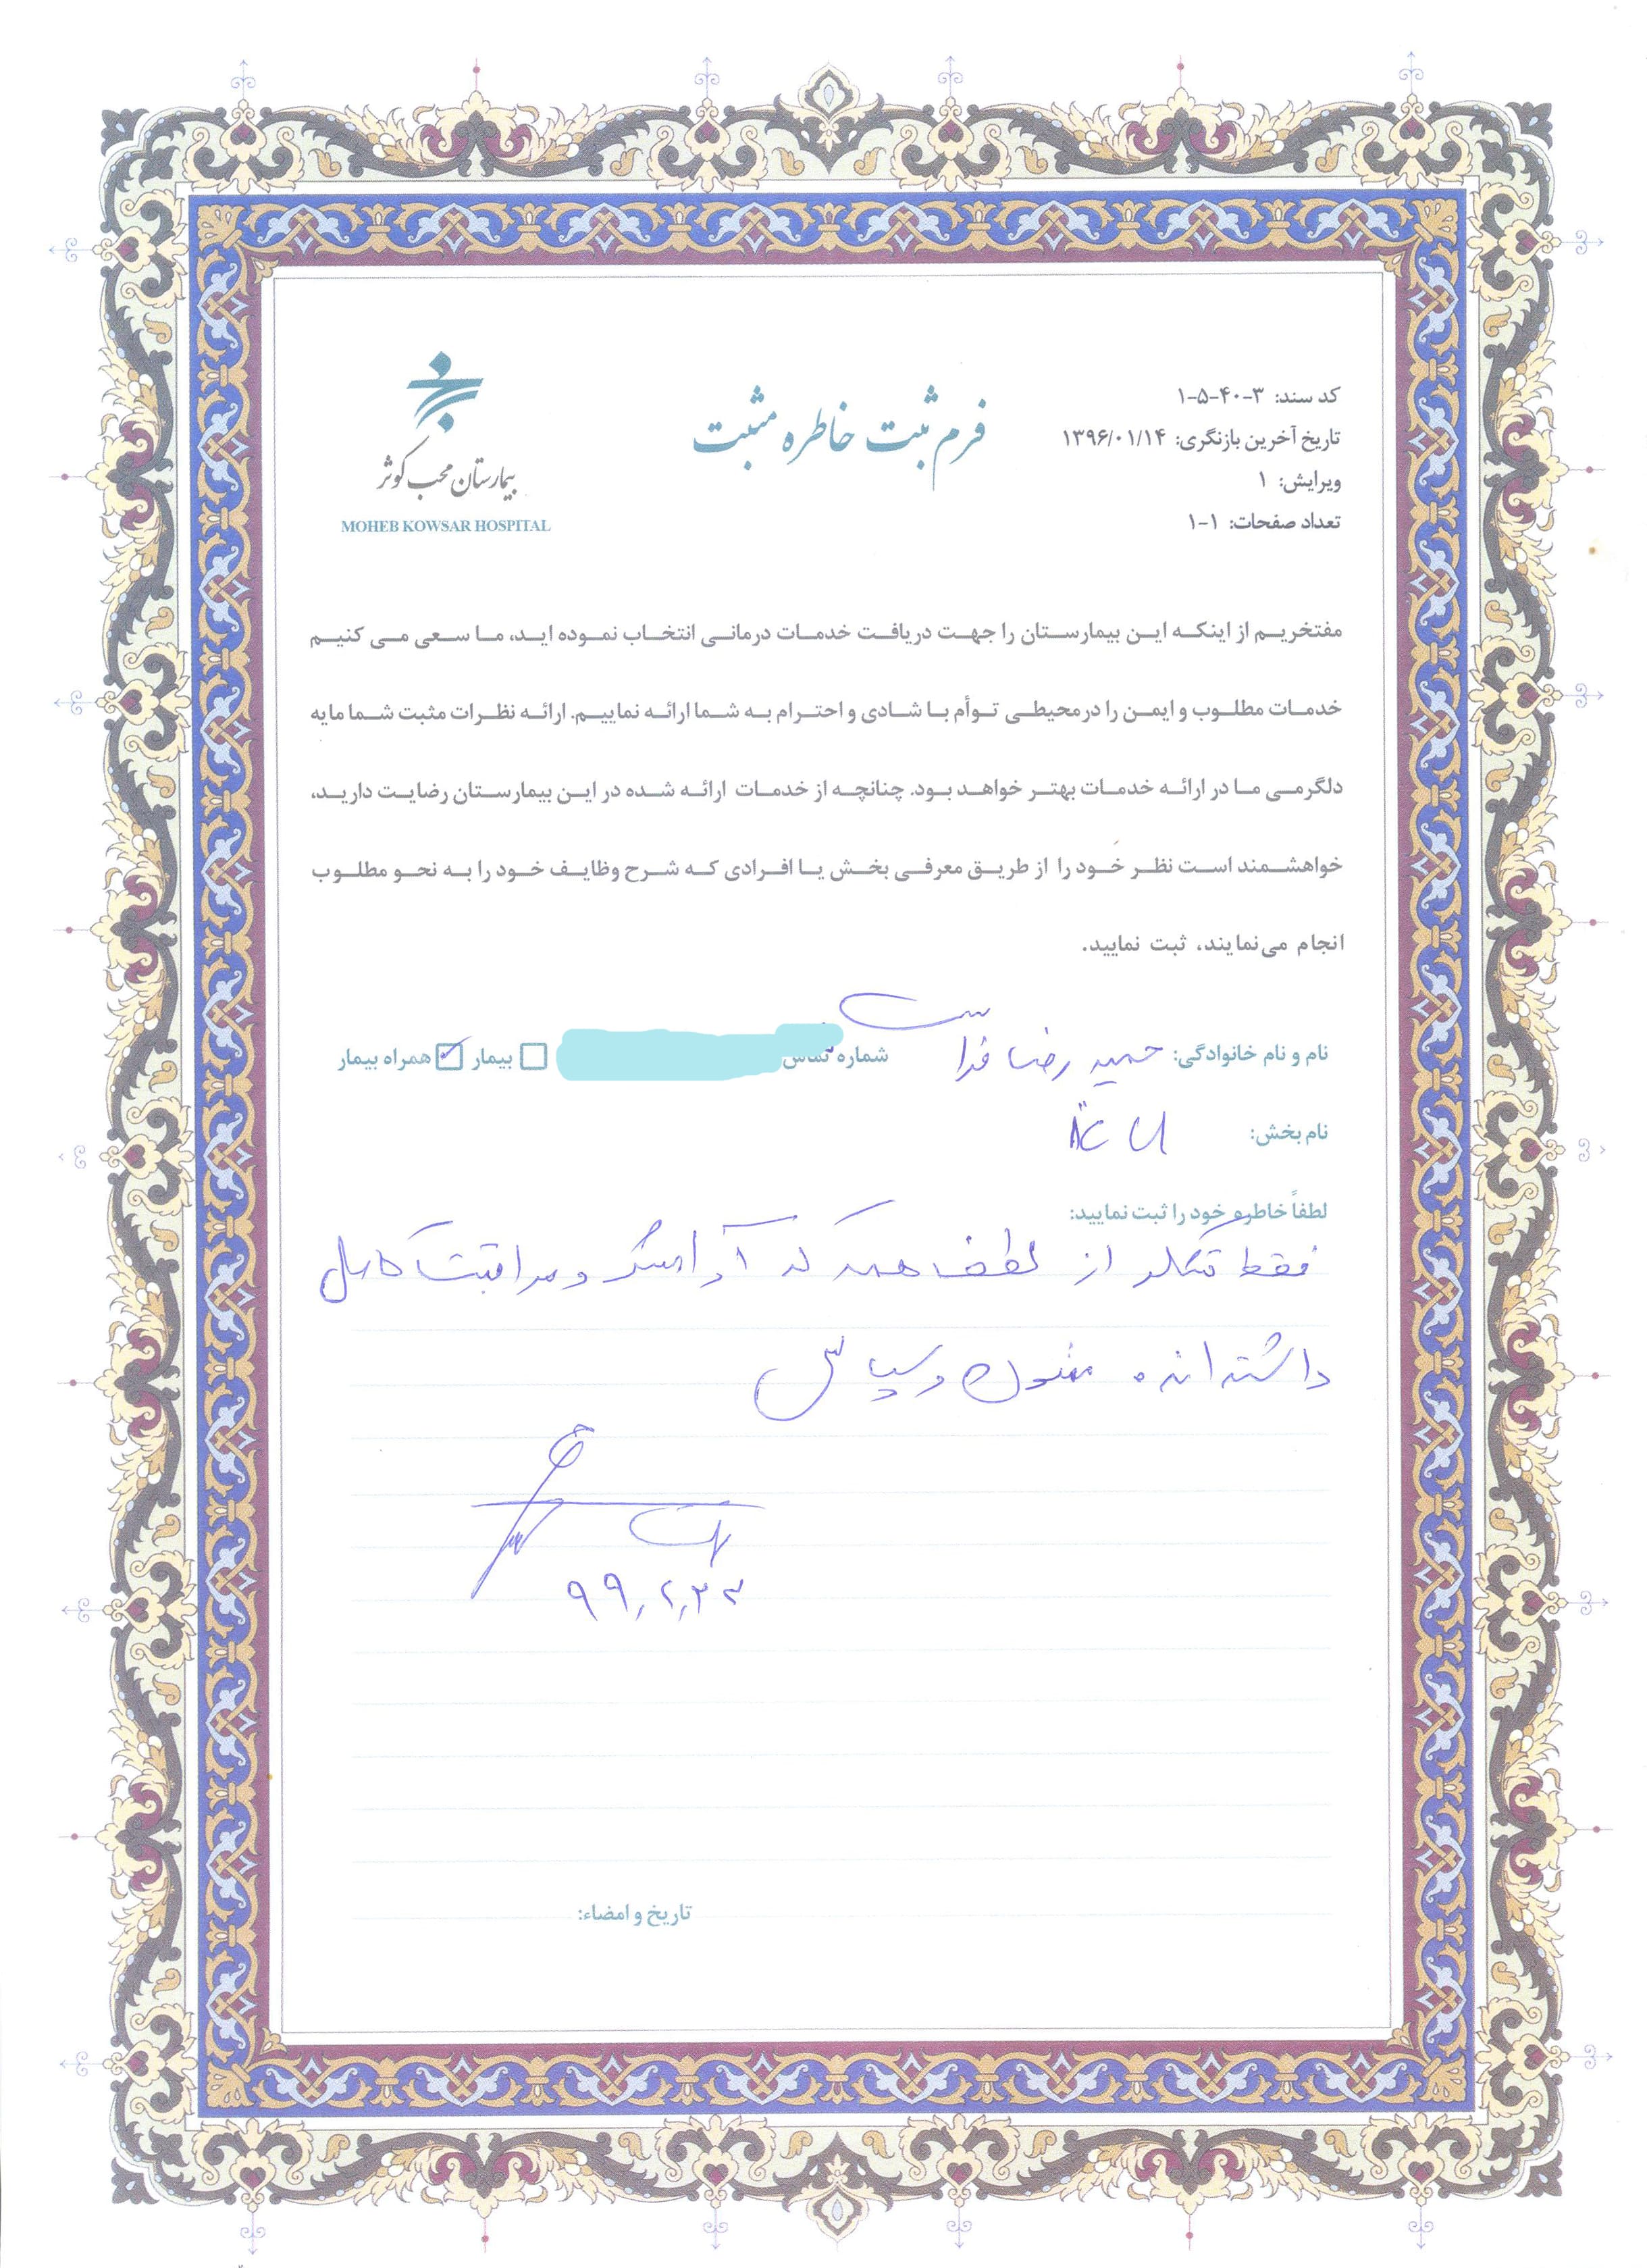 کد سند: ۳-۴۰-۵-۱
تاریخ آخرین بازنگری: ۱۳۹۶/۰۱/۱۴
ویرایش: ۱
تعداد صفحات: ۱-۱
فرم ثبت خاطره مثبت
بیمارستان محب کوثر
MOHEB KOWSAR HOSPITAL
مفتخریم از اینکه این بیمارستان را جهت دریافت خدمات درمانی انتخاب نموده اید، ما سعی می کنیم
خدمات مطلوب و ایمن را در محیطی توأم با شادی و احترام به شما ارائه نماییم. ارائه نظرات مثبت شما مایه
دلگرمی ما در ارائه خدمات بهتر خواهد بود. چنانچه از خدمات ارائه شده در این بیمارستان رضایت دارید،
خواهشمند است نظر خود را از طریق معرفی بخش یا افرادی که شرح وظایف خود را به نحو مطلوب
انجام می‌نمایند، ثبت نمایید.
نام و نام خانوادگی: حمید رضا فراست شماره تماس بیمار همراه بیمار
نام بخش: ICU
لطفاً خاطره خود را ثبت نمایید:
فقط تشکر از لطف همه که آرامش و مراقبت کامل
داشته اند ممنون و سپاس
۹۹,۲,۲۳
تاریخ و امضاء: